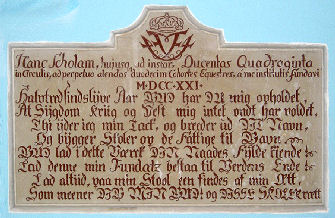 Hanc Scholam, hujusq; ad instar, Ducentas Quadraginta
in Circulis, ad perpetuo alendos duodecim Cohortes Equestres, a me institutis fundavi
M·DCC·XXI·
Halvtredsindstive Aar GUD har DU mig opholdet,
At Sygdom Kriig og Pest mig intet ondt har voldet,
Thi yder ieg min Tack, og breeder ud DIT Navn,
Og bygger Skoler op de Fattige til Gavn,
GUD lad i dette Værck DIN Naades Fylde kiende
Lad denne min Fundatz bestaa til Verdens Ende
Lad altiid paa min Stool een findes af min Æt,
Som meener DIG MIN GUD! og DISSE SKOLER rett